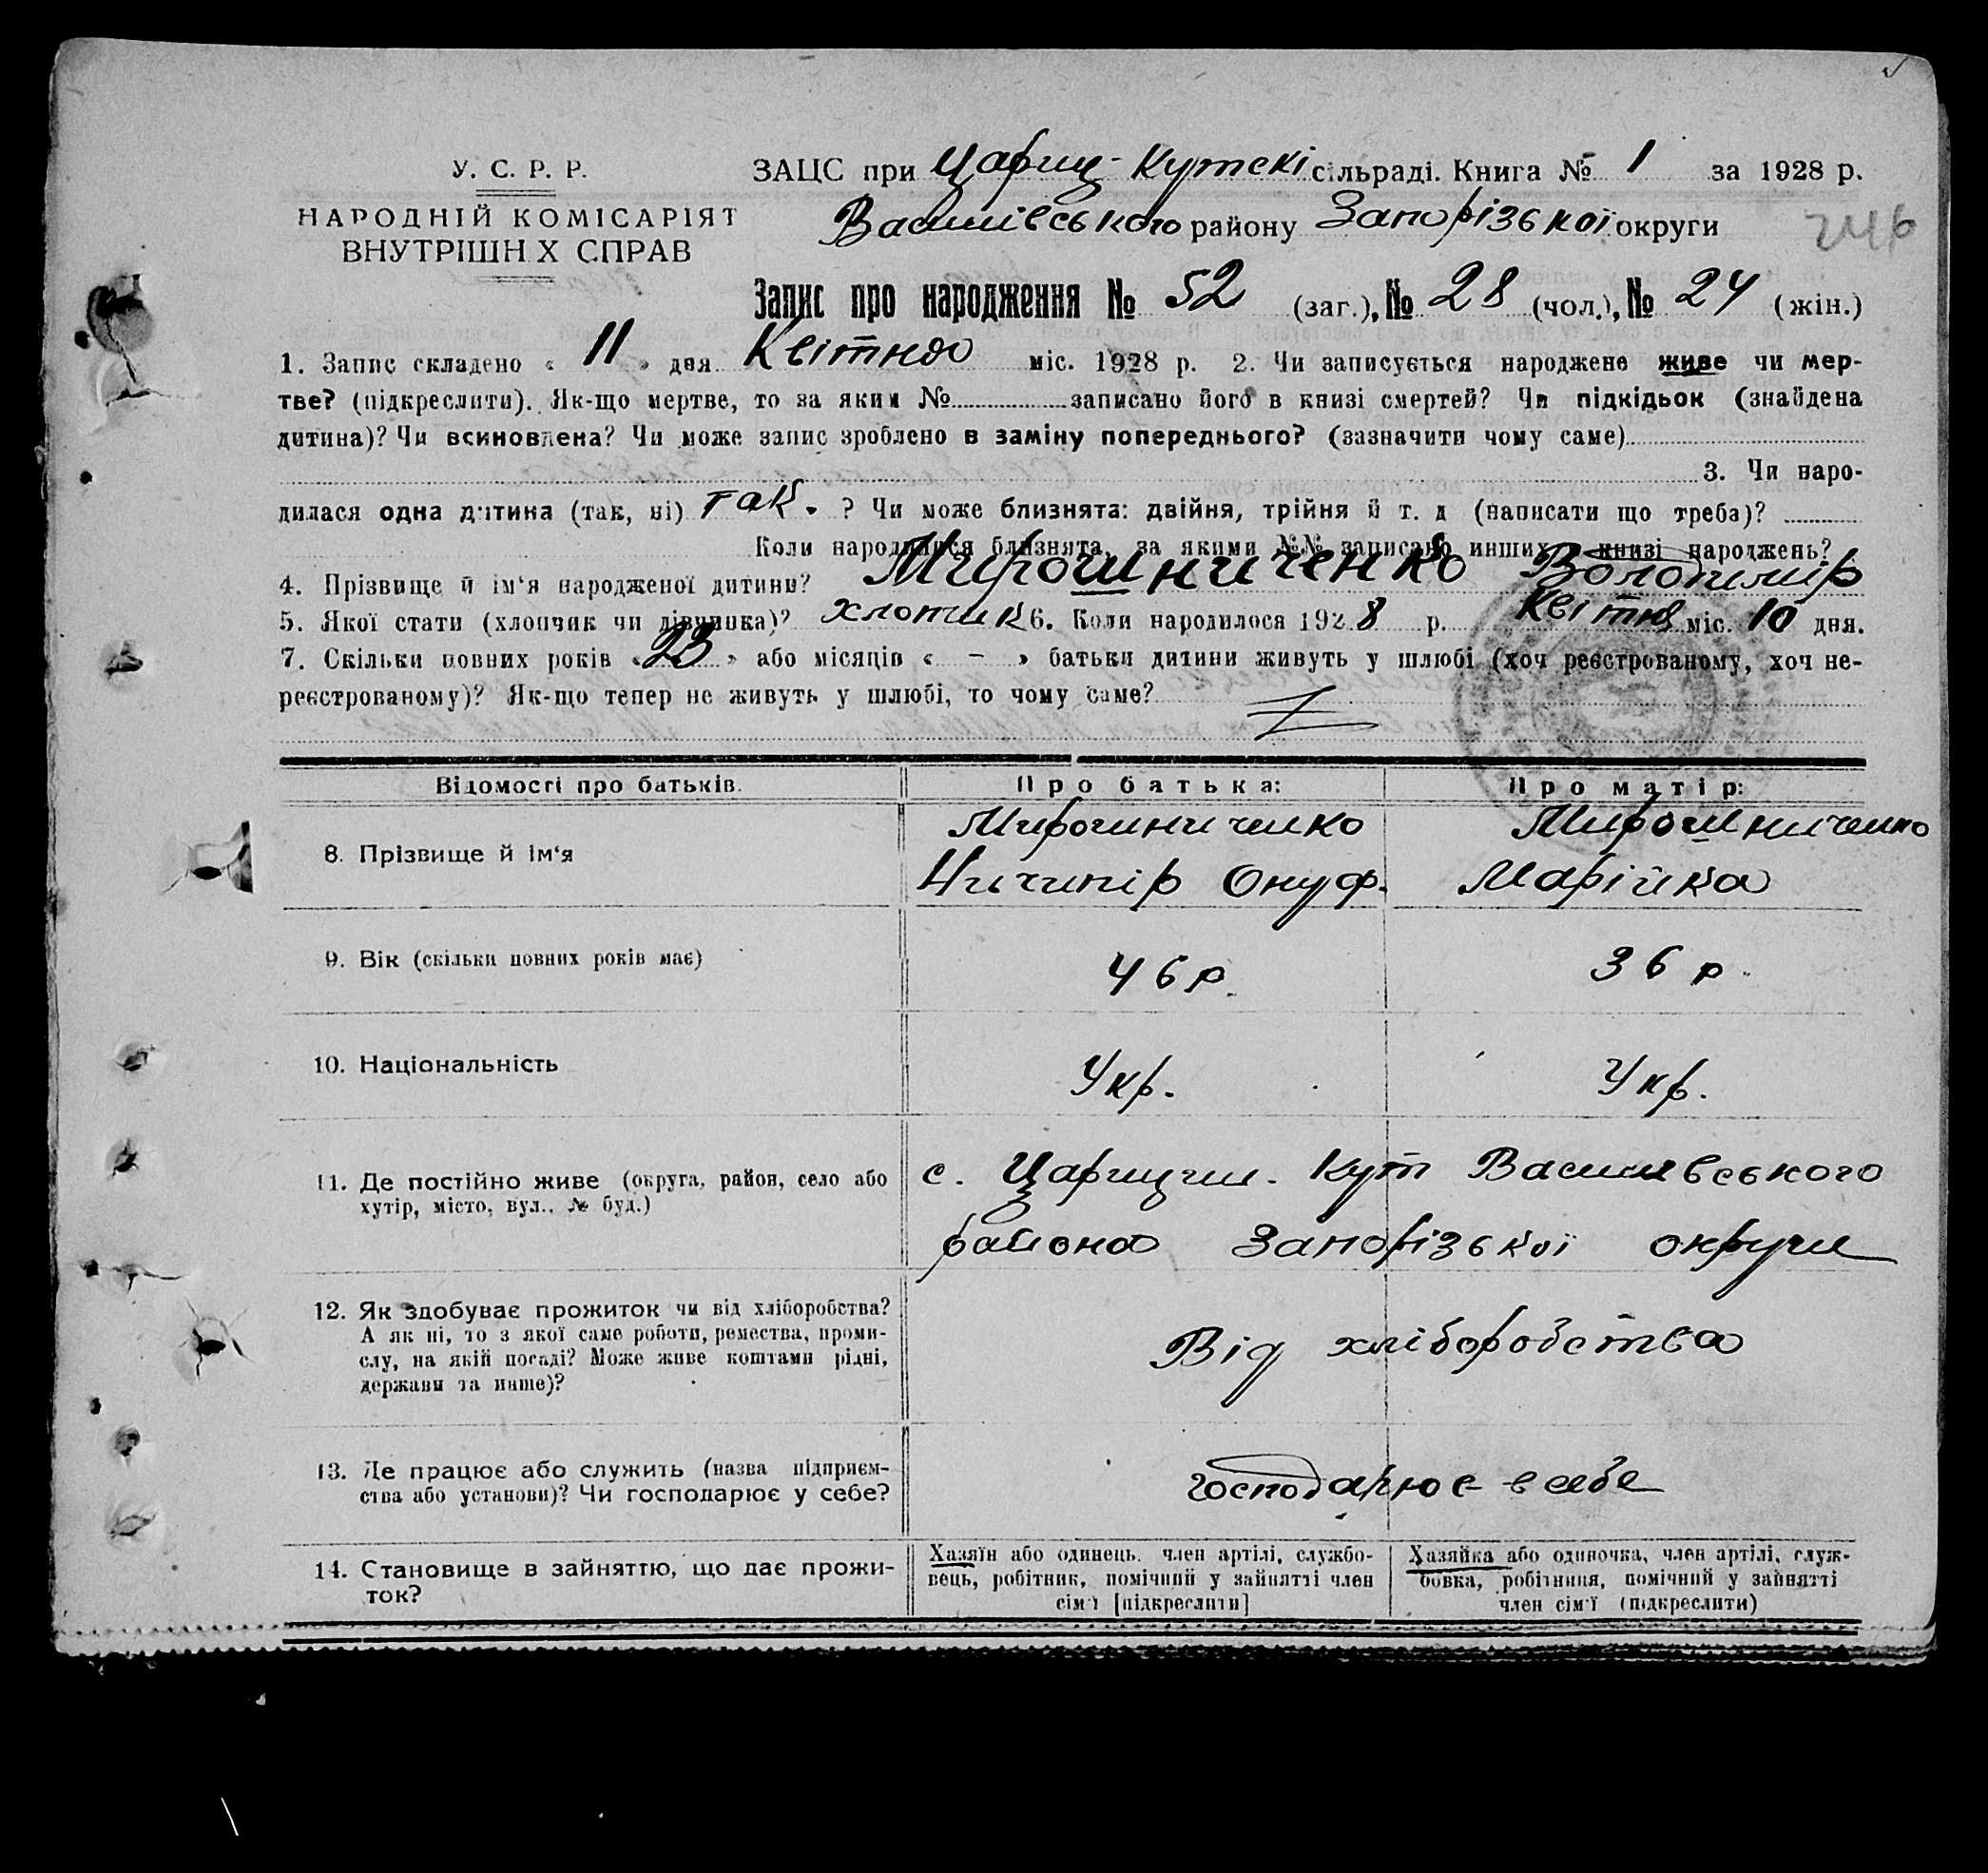 У. С. Р. Р.
НАРОДНІЙ КОМІСАРІЯТ
ВНУТРІШН Х СПРАВ
ЗАЦС при Цариц-Кутскі сільраді. Книга № 1 за 1928 р.
Василівського району Запорізької округи
246
Запис про народження № 52 (заг.), № 28 (чол.), № 24 (жін.)
1. Запис складено « 11 » дня Квітня міс. 1928 р. 2. Чи записується народжене живе чи мер-
тве? (підкреслити). Як-що мертве, то за яким № записано його в книзі смертей? Чи підкідьок (знайдена
дитина)? Чи всиновлена? Чи може запис зроблено в заміну попереднього? (зазначити чому саме)
3. Чи наро-
дилася одна дитина (так, ні) так. ? Чи може близнята: двійня, трійня й т. д (написати що треба)?
Коли народилися близнята, за якими №№ записано инших в книзі народжень?
4. Прізвище й ім'я народженої дитини? Мирошниченко Володимір
5. Якої стати (хлопчик чи дівчинка)? хлопчик 6. Коли народилося 1928 р. Квітня міс. 10 дня.
7. Скільки повних років « 23 » або місяців « – » батьки дитини живуть у шлюбі (хоч реєстрованому, хоч не-
реєстрованому)? Як-що тепер не живуть у шлюбі, то чому саме?
Відомості про батьків. Про батька: Про матір:
8. Прізвище й ім'я Мирошниченко Мирошниченко
Ничипір Онуф. Марійка
9. Вік (скільки повних років має) 46 р. 36 р.
10. Національність Укр. Укр.
11. Де постійно живе (округа, район, село або
хутір, місто, вул., № буд.)
с. Царицин. Кут Василівського
района Запорізької округи
12. Як здобуває прожиток чи від хліборобства?
А як ні, то з якої саме роботи, ремества, проми-
слу, на якій посаді? Може живе коштами рідні,
держави та инше)?
Від хліборобства
13. Де працює або служить (назва підприєм-
ства або установи)? Чи господарює у себе?
господарює в себе
14. Становище в зайняттю, що дає прожи-
ток?
Хазяїн або одинець, член артілі, службо-
вець, робітник, помічний у зайнятті член
сім'ї [підкреслити]
Хазяйка або одиночка, член артілі, служ-
бовка, робітниця, помічний у зайнятті
член сім'ї (підкреслити)